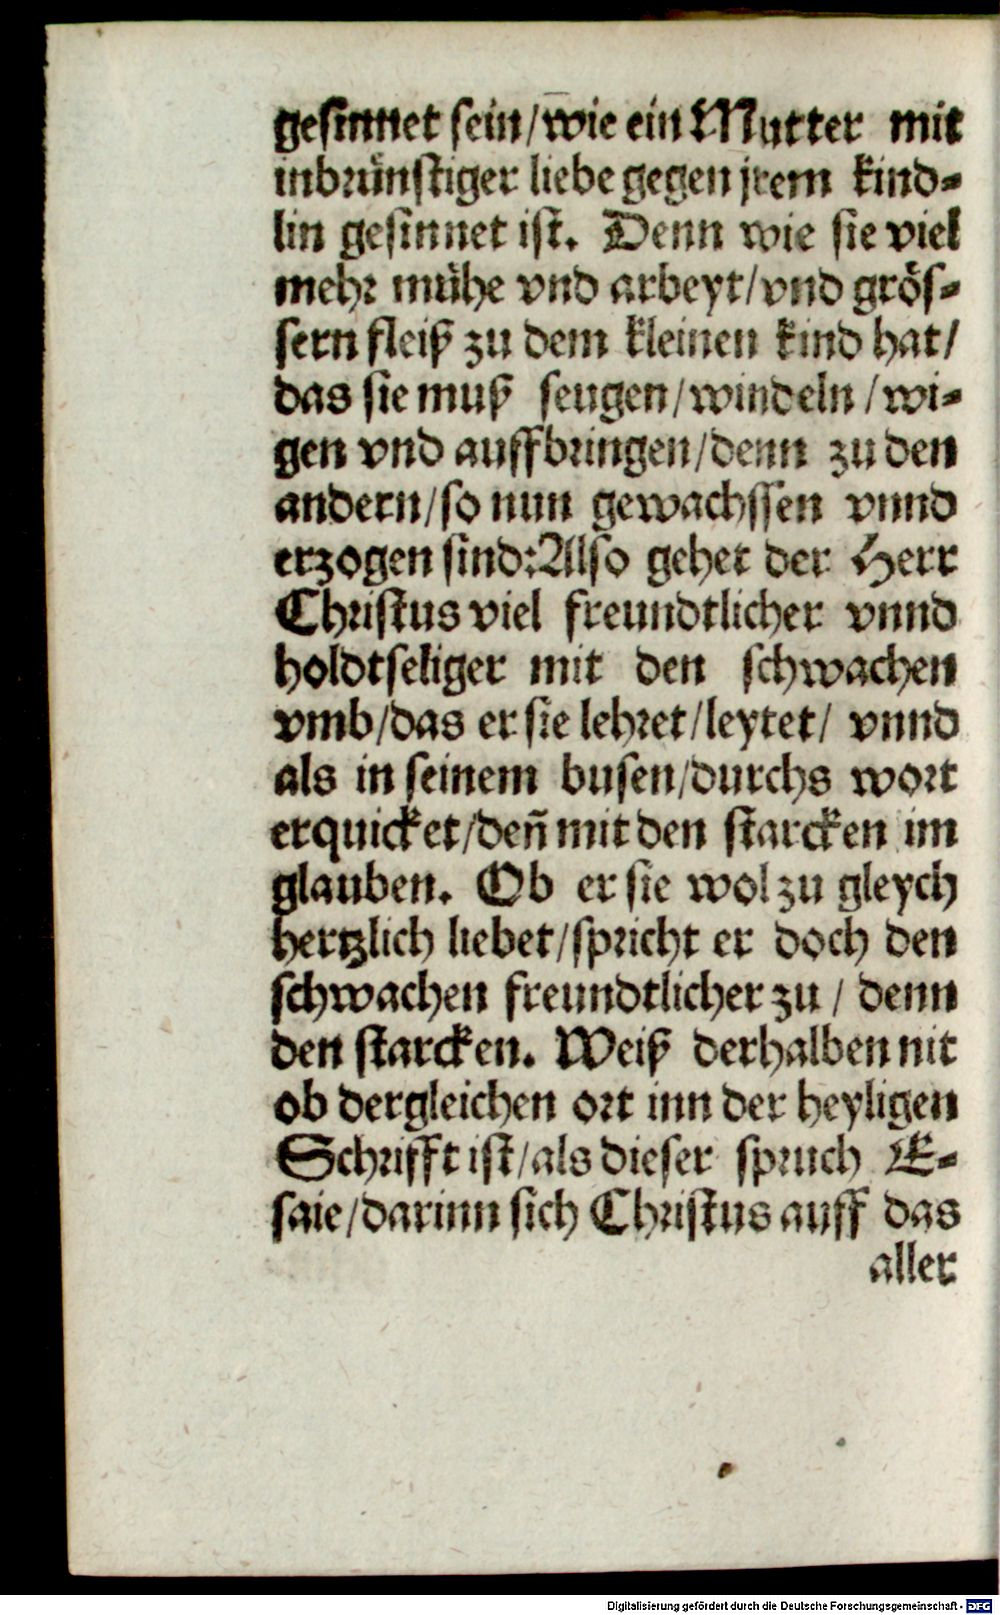 gesinnet sein/wie ein Mutter mit
inbrünstiger liebe gegen jrem kind-
lin gesinnet ist. Denn wie sie viel
mehr mühe vnd arbeyt/vnd grös-
sern fleiß zu dem kleinen kind hat/
das sie muß seugen/windeln/wi-
gen vnd auffbringen/denn zu den
andern/so nun gewachssen vnnd
erzogen sind: Also gehet der Herr
Christus viel freundtlicher vnnd
holdtseliger mit den schwachen
vmb/das er sie lehret/leytet/ vnnd
als in seinem busen/durchs wort
erquicket/deñ mit den starcken im
glauben. Ob er sie wol zu gleych
hertzlich liebet/spricht er doch den
schwachen freundtlicher zu/ denn
den starcken. Weiß derhalben nit
ob dergleichen ort inn der heyligen
Schrifft ist/als dieser spruch E-
saie/darinn sich Christus auff das
aller
Digitalisierung gefördert durch die Deutsche Forschungsgemeinschaft - DFG